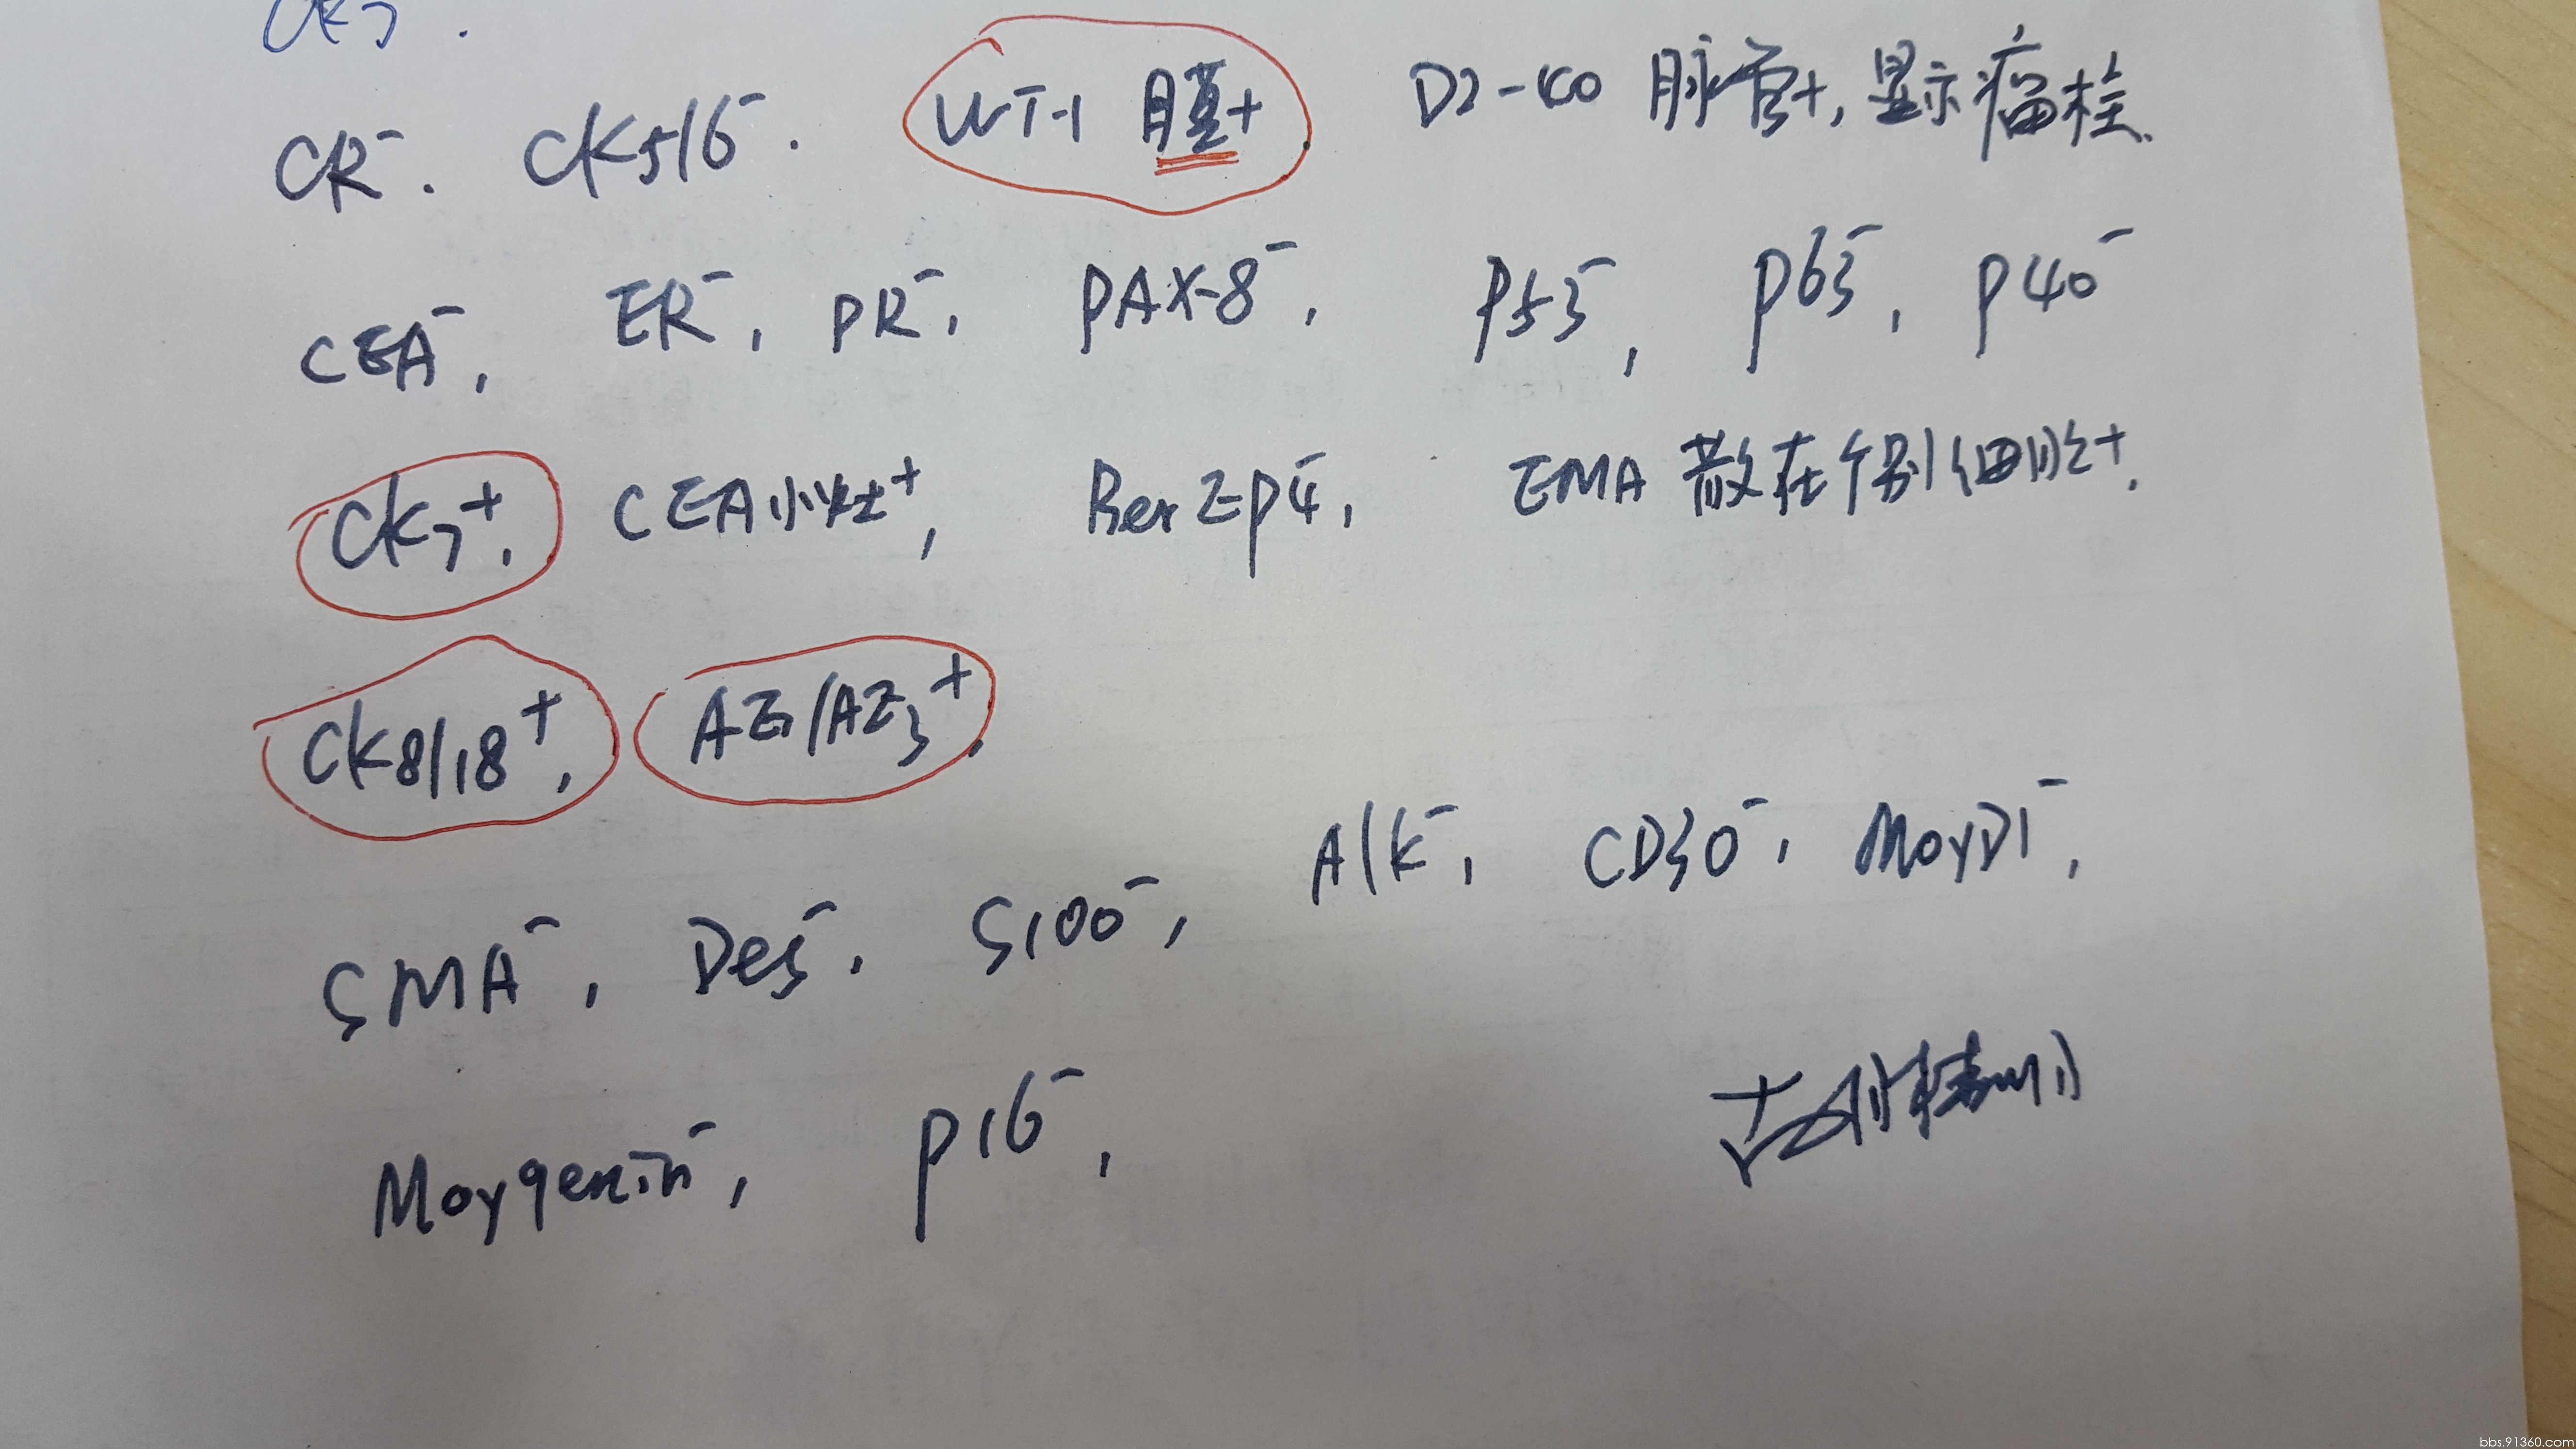 CK7.
CR-. CK5/6-. WT-1 胞浆+ D2-40 脉管+, 显示瘤栓.
CEA-, ER-, PR-, PAX-8-, P53-, P63-, P40-
CK7+, CEA小灶+, Ber EP4-, EMA 散在个别细胞+.
CK8/18+, AE1/AE3+,
SMA-, Des-, S100-, Alk-, CD30-, MoyD1-,
Moygenin-, P16-,
bbs.91360.com